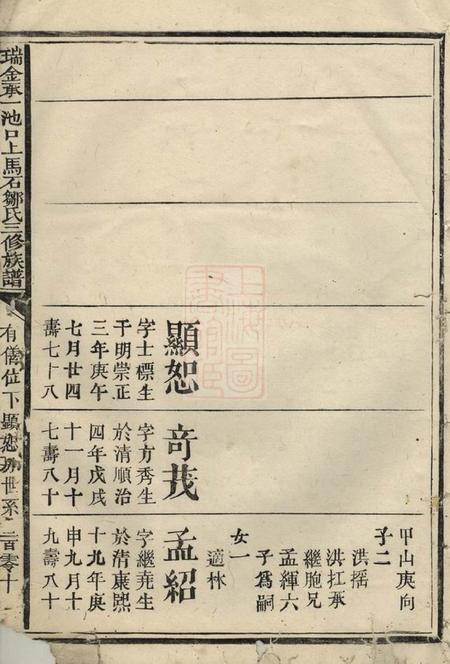 甲山庚向
子二
洪摇
洪扛承
繼胞兄
孟緷六
子爲嗣
女一
適林
顯恕
字士標生
于明崇正
三年庚午
七月廿四
壽七十八
奇茂
字方秀生
於清順治
四年戊戌
十一月十
七壽八十
孟紹
字繼堯生
於清康熙
十九年庚
申九月十
九壽八十
瑞金承一池口上馬石鄒氏三修族譜
有儀位下顯恕房世系
二百零十
上海圖書館臧